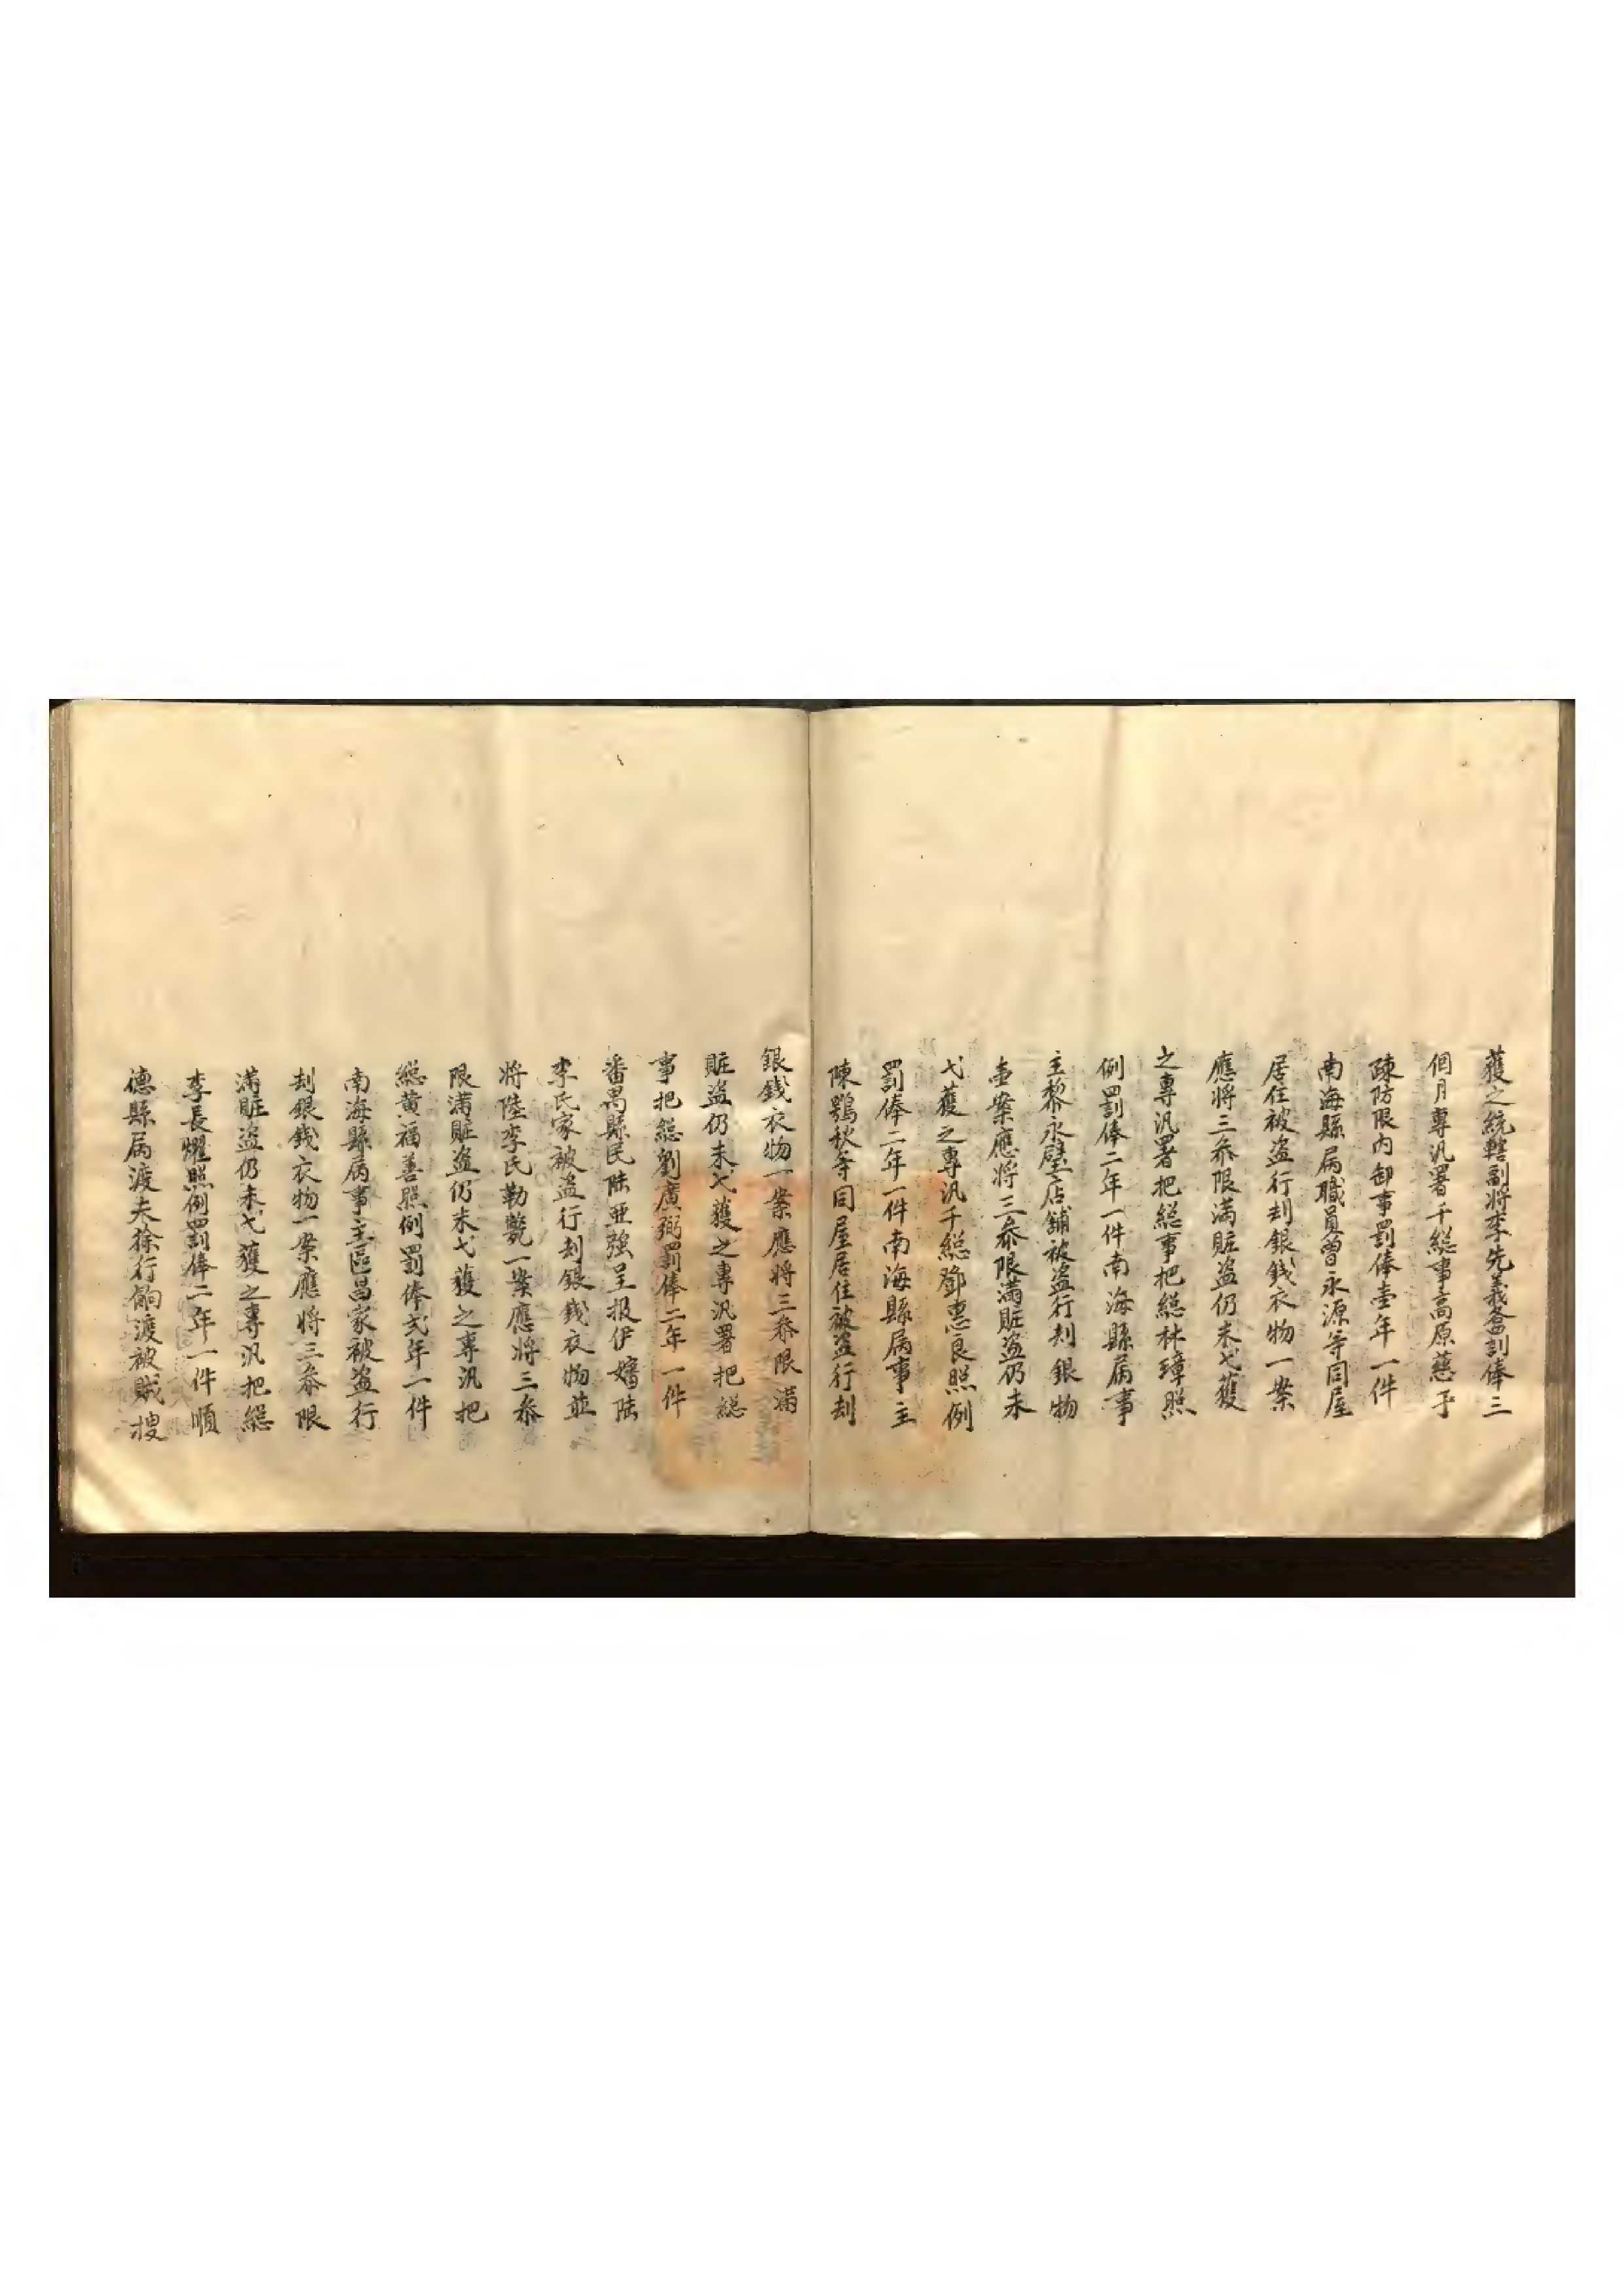 獲之統轄副將李先義各罰俸三
個月專汛署千総事高原慈予
踈防限內卸事罰俸壹年一件
南海縣屬職員曾永源等同屋
居住被盗行刦銀錢衣物一案
應將三叅限滿賍盗仍未弋獲
之專汛署把総事把総林璋照
例罰俸二年一件南海縣屬事
主黎永壁店舖被盗行刦銀物
壹案應將三叅限滿賍盗仍未
弋獲之專汛千総鄧惠良照例
罰俸二年一件南海縣屬事主
陳鶚秋等同屋居住被盗行刦
銀錢衣物一案應將三叅限滿
賍盗仍未弋獲之專汛署把総
事把総劉廣弼罰俸二年一件
番禺縣民陆亚強呈报伊嬸陆
李氏家被盗行刦銀錢衣物並
將陸李氏勒斃一案應將三叅
限滿賍盗仍未弋獲之專汛把
総黄福善照例罰俸弍年一件
南海縣屬事主區昌家被盗行
刦銀錢衣物一案應將三叅限
滿賍盗仍未弋獲之專汛把総
李長耀照例罰俸二年一件順
德縣屬渡夫徐行餉渡被賊搜